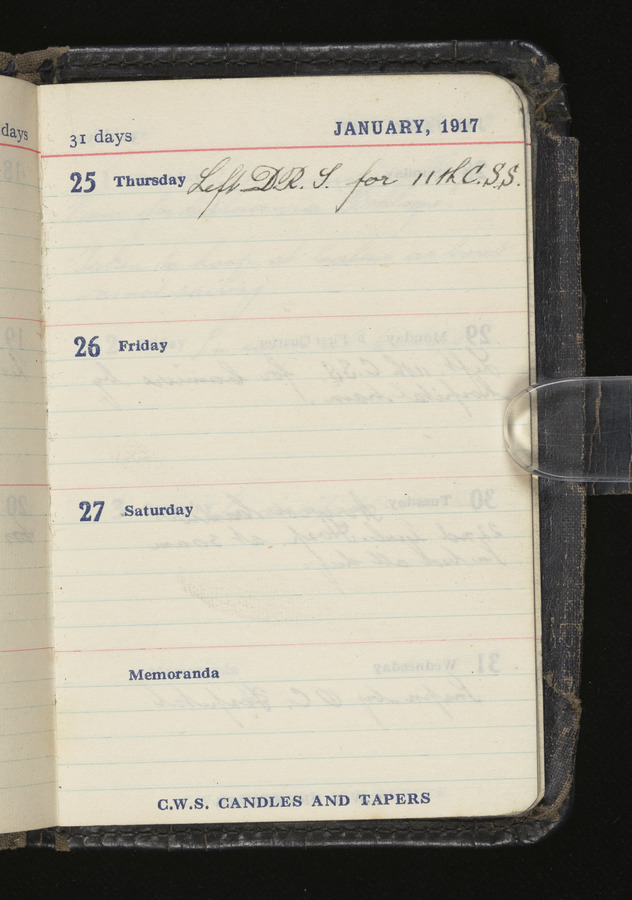 days
31 days
JANUARY, 1917
25 Thursday Left D.R.S. for 11th C.S.S.
26 Friday
27 Saturday
Memoranda
C.W.S. CANDLES AND TAPERS